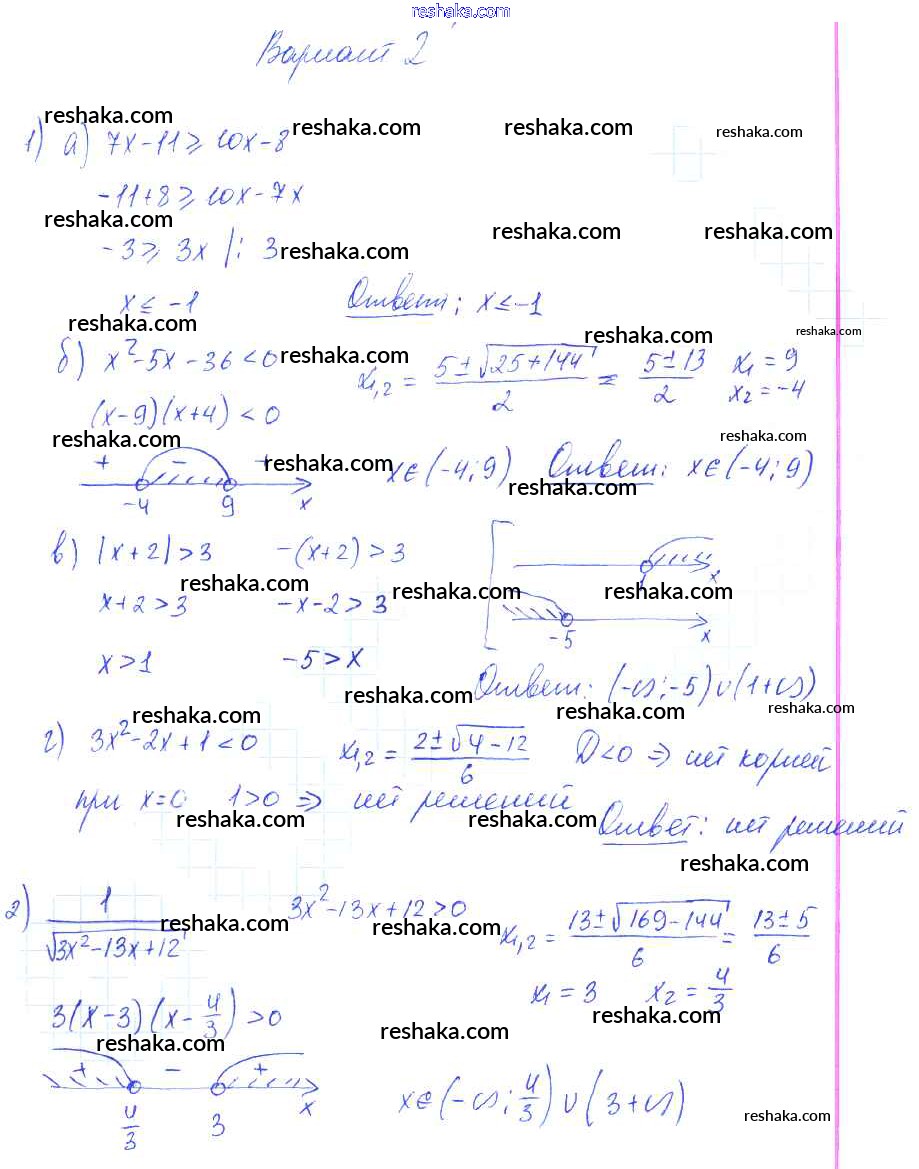 reshaka.com
Вариант 2
reshaka.com reshaka.com reshaka.com reshaka.com
1) а) 7x-11 ≥ 10x-8
-11+8 ≥ 10x-7x
reshaka.com reshaka.com reshaka.com
-3 ≥ 3x |: 3 reshaka.com
x ≤ -1 Ответ: x ≤ -1
reshaka.com reshaka.com reshaka.com
б) x²-5x-36<0 reshaka.com x₁,₂ = (5±√(25+144))/2 = (5±13)/2 x₁ = 9 x₂ = -4
(x-9)(x+4)<0
reshaka.com reshaka.com
+ - + reshaka.com x∈(-4;9) Ответ: x∈(-4;9)
-4 9 x reshaka.com
в) |x+2|>3 -(x+2)>3
reshaka.com reshaka.com reshaka.com
1 x
x+2>3 -x-2>3
-5 x
x>1 -5>x
reshaka.com Ответ: (-∞;-5)∪(1+∞)
reshaka.com reshaka.com reshaka.com
г) 3x²-2x+1<0 x₁,₂ = (2±√(4-12))/6 D<0 ⇒ нет корней
при x=0 1>0 ⇒ нет решений
reshaka.com reshaka.com Ответ: нет решений
reshaka.com
2) 1/√(3x²-13x+12) reshaka.com 3x²-13x+12>0 reshaka.com x₁,₂ = (13±√(169-144))/6 = (13±5)/6
x₁ = 3 x₂ = 4/3
3(x-3)(x-4/3)>0 reshaka.com
reshaka.com reshaka.com
+ - +
4/3 3 x x∈(-∞;4/3)∪(3+∞)
reshaka.com